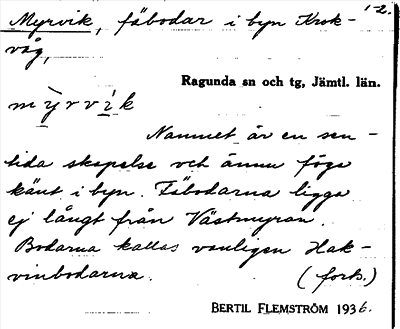 1-2.
Myrvik, fäbodar i byn Krok-
våg,
Ragunda sn och tg, Jämtl. län.
mỳrvìk
Namnet är en sen-
tida skapelse och ännu föga
känt i byn. Fäbodarna ligga
ej långt från Västmyran.
Bodarna kallas vanligen Hak-
vinbodarna. (forts.)
BERTIL FLEMSTRÖM 1936.